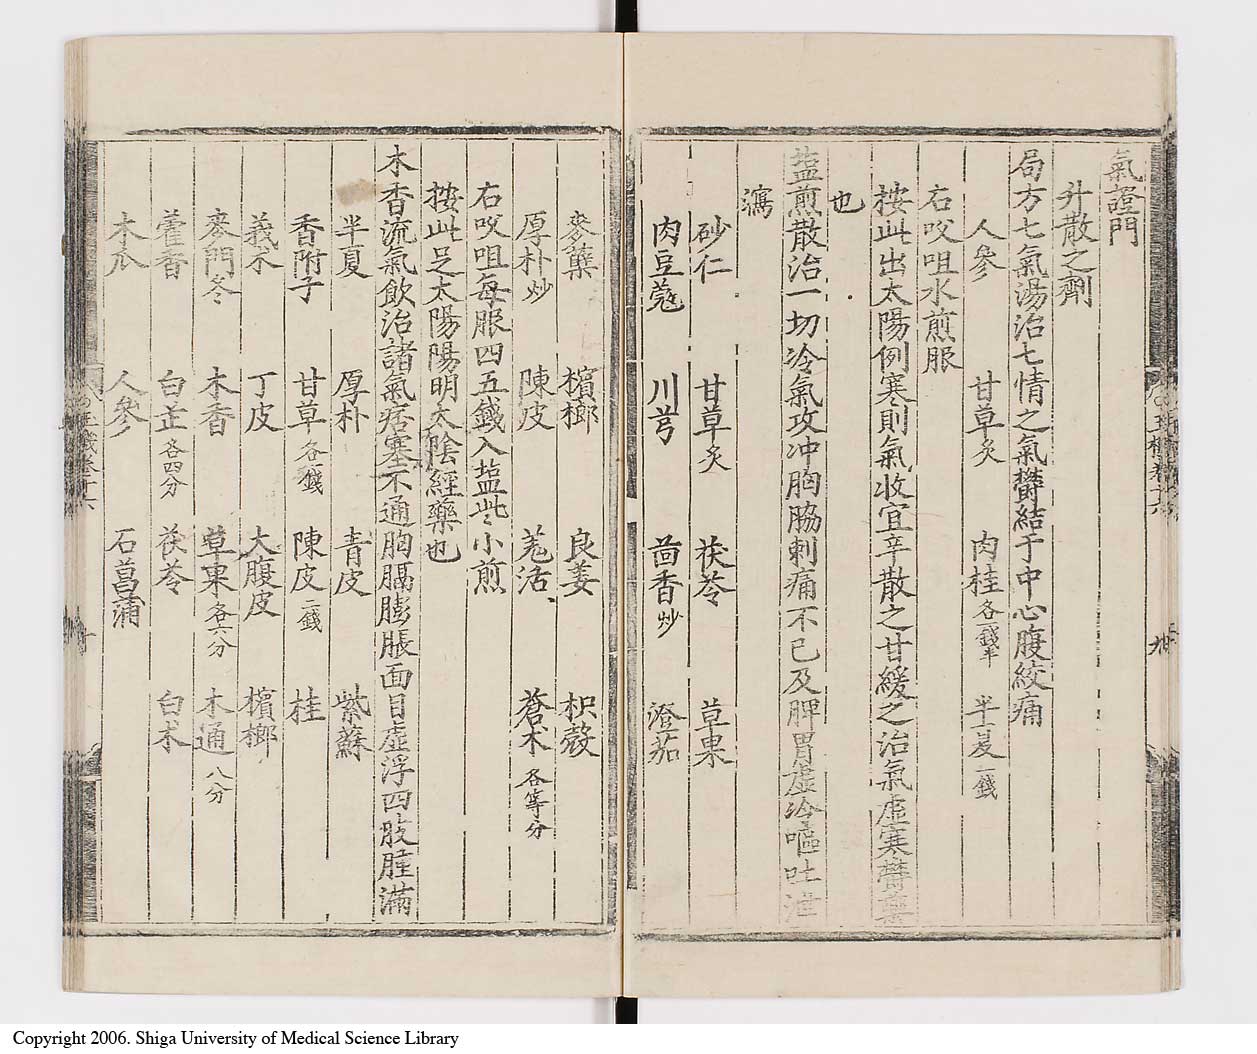 氣證門
升散之劑
局方七氣湯治七情之氣欝結于中心腹絞痛
人參 甘草炙 肉桂各一錢半 半夏一錢
右㕮咀水煎服
按此出太陽例寒則氣收宜辛散之甘緩之治氣虛寒欝藥
也
塩煎散治一切冷氣攻冲胸脇刺痛不已及脾胃虛冷嘔吐泄
瀉
砂仁 甘草炙 茯苓 草果
肉豆蔻 川芎 茴香炒 澄茄
麥蘖 檳榔 良姜 枳殼
厚朴炒 陳皮 羗活 蒼朮各等分
右㕮咀每服四五錢入塩些小煎
按此足太陽陽明太陰經藥也
木香流氣飲治諸氣痞塞不通胸膈膨脹面目虛浮四肢腫滿
半夏 厚朴 青皮 紫蘇
香附子 甘草各一錢 陳皮二錢 桂
莪朮 丁皮 大腹皮 檳榔
麥門冬 木香 草果各六分 木通八分
藿香 白芷各四分 茯苓 白朮
木瓜 人參 石菖蒲
Copyright 2006. Shiga University of Medical Science Library